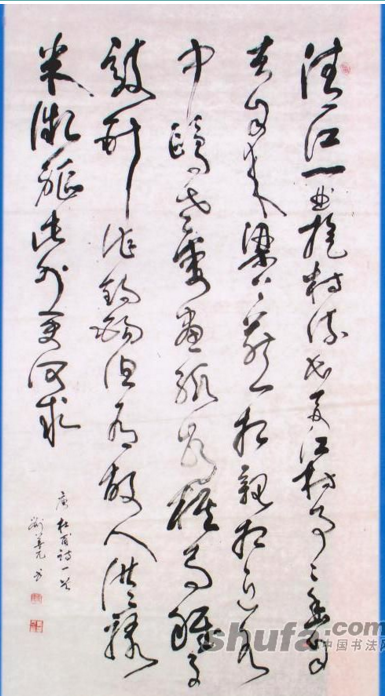 清江一曲抱村流長夏江村事々幽自
去自来梁上燕相親相近水
中鷗老妻畫紙為棋局稚子
敲針作釣鈎但有故人供禄
米微軀此外更何求
唐杜甫詩一首
書
shufa.com
中国书法网